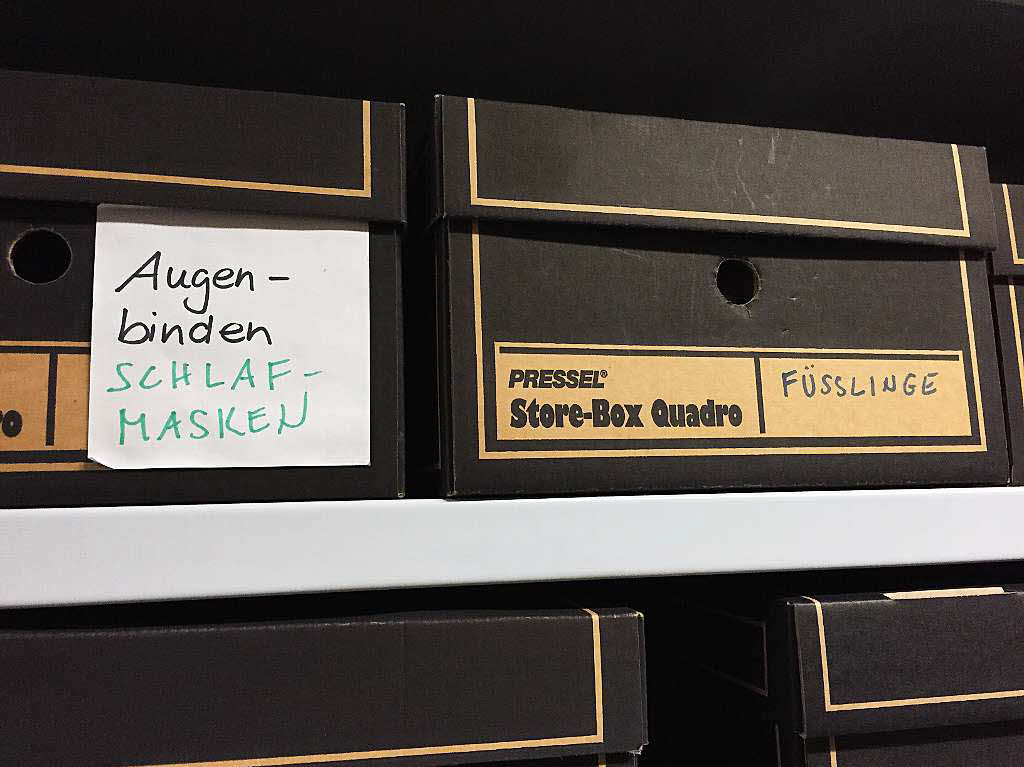 Augen-
binden
SCHLAF-
MASKEN
PRESSEL®
Store-Box Quadro
FÜSSLINGE